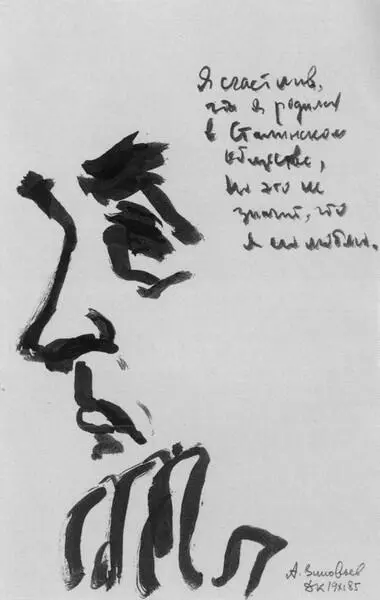 Я счастлив,
что я родился
в Сталинском
обществе,
но это не
значит, что
я его люблю.
А. Зиновьев
19XI85